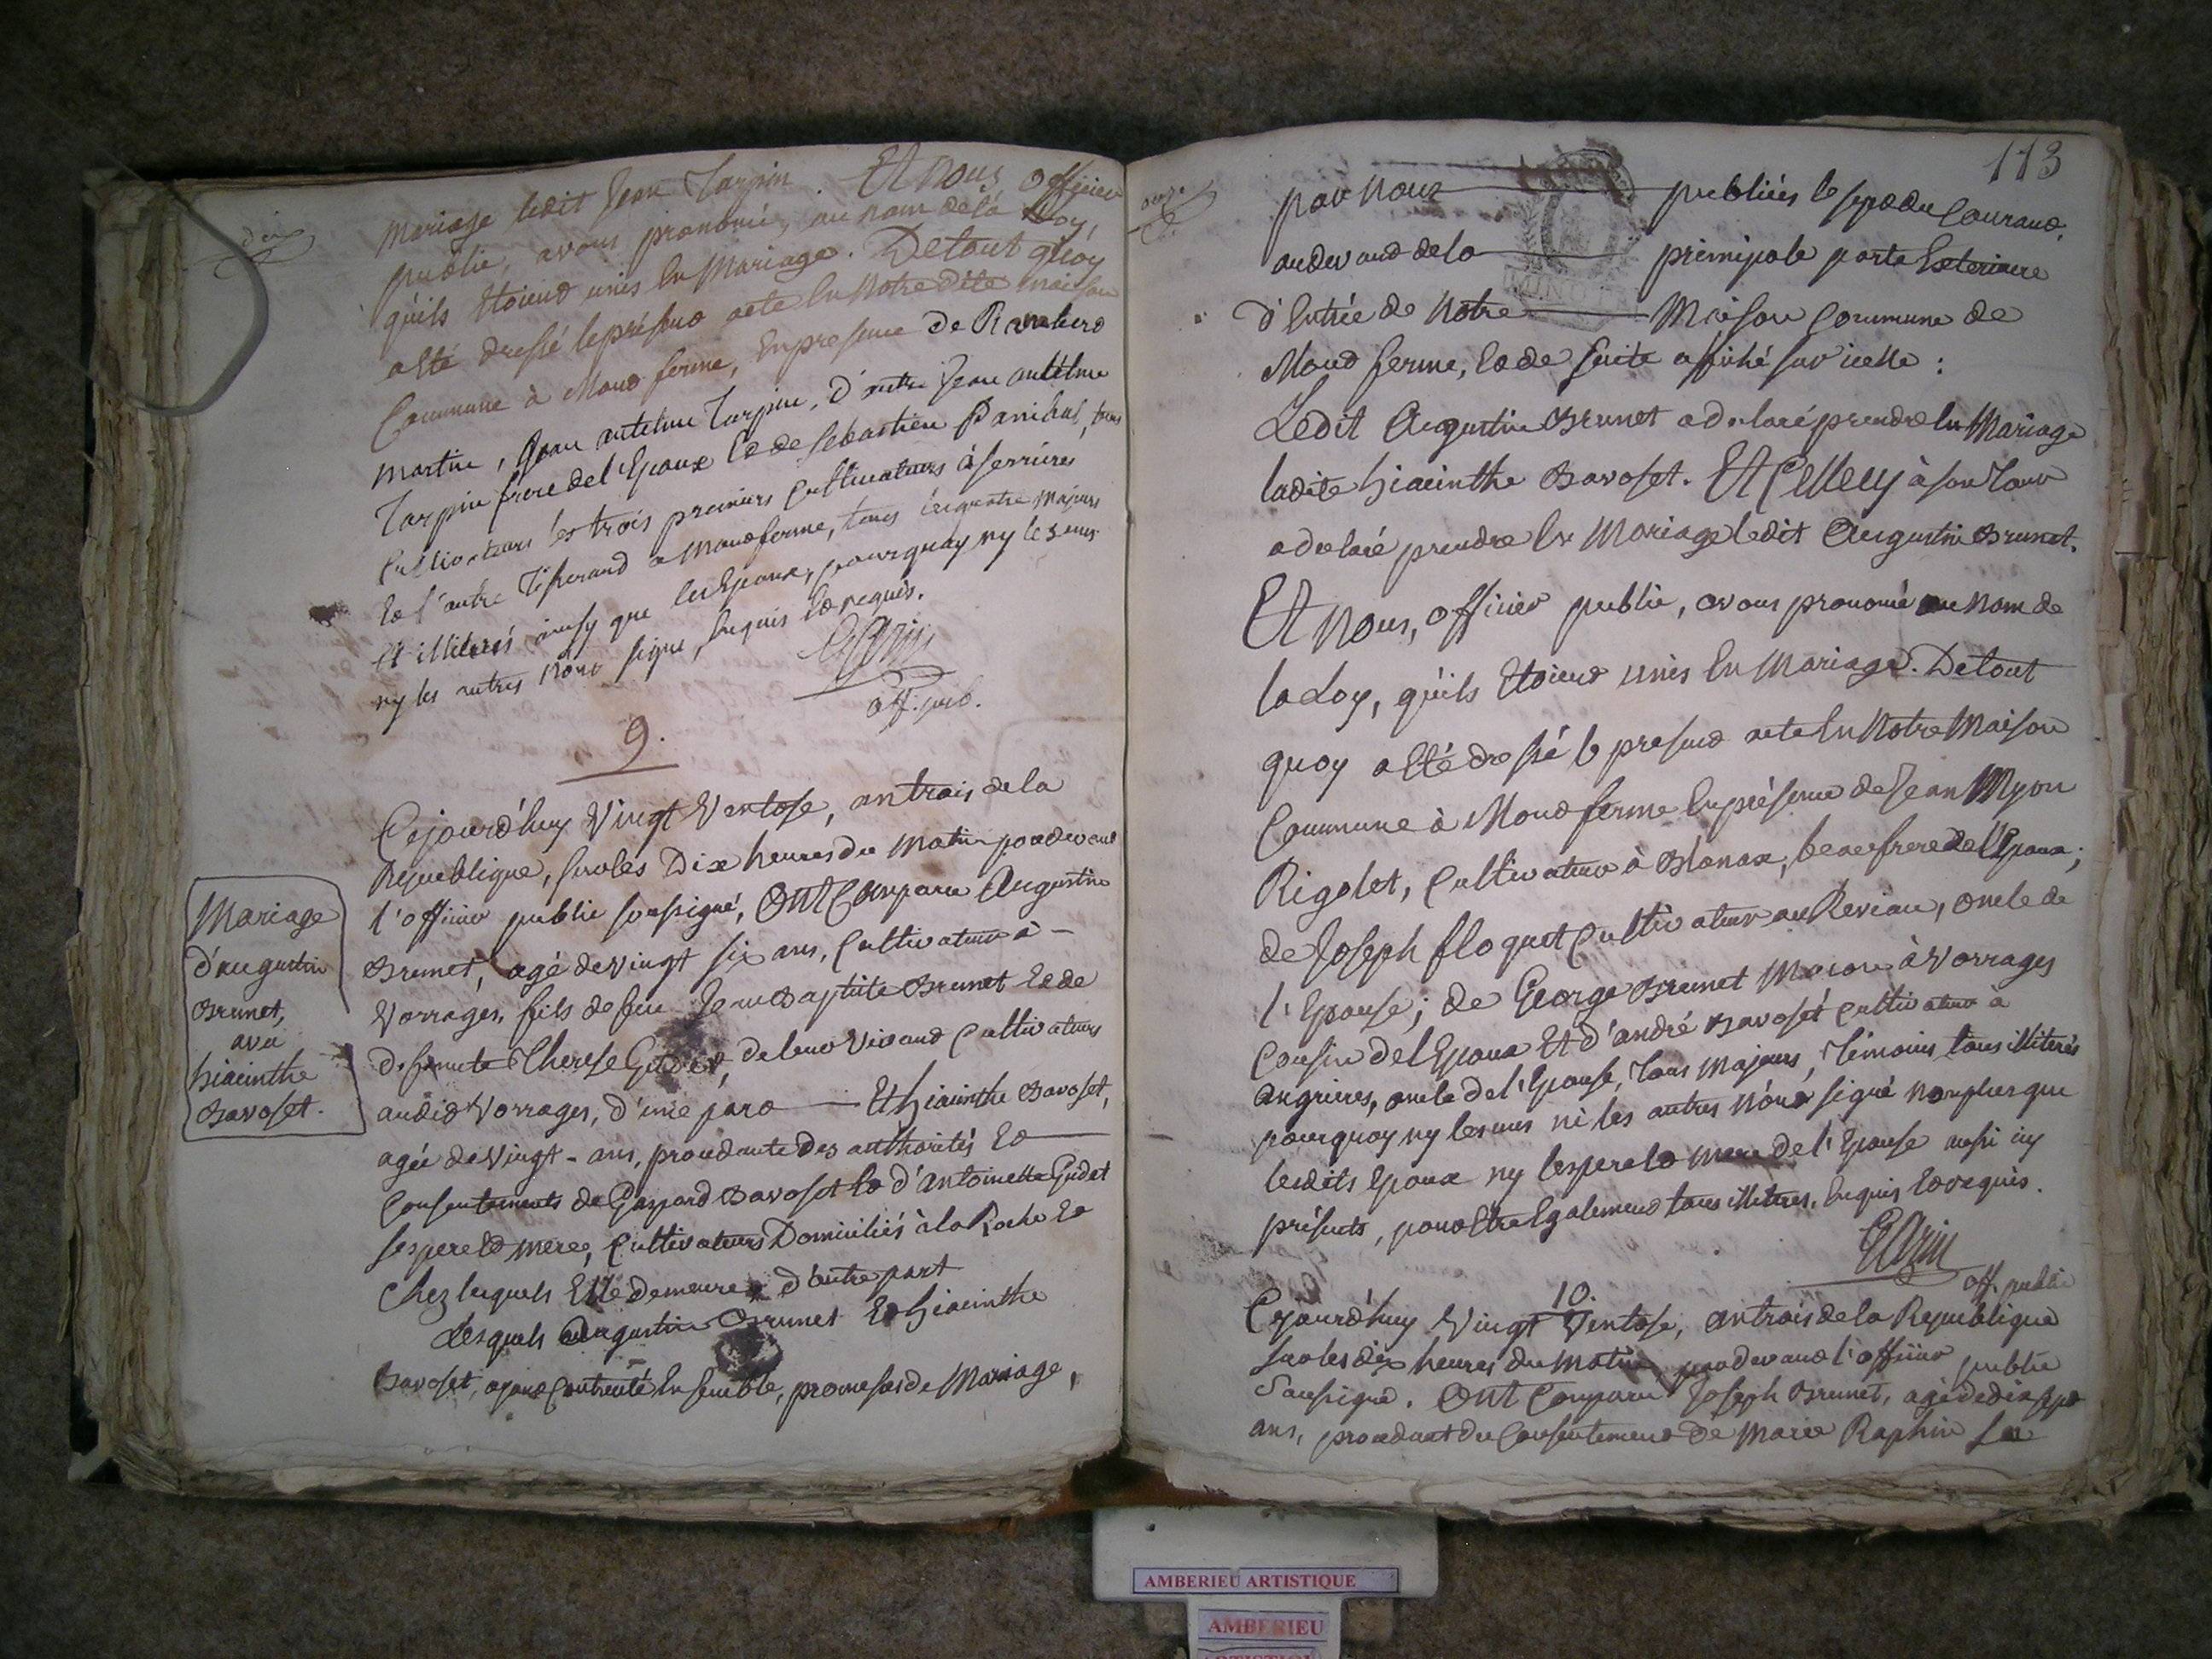 dix
mariage ledit Jean Tarpin. Et nous, officier
public, avons prononcé, au nom de la Loy,
qu'ils étoient unis en mariage. De tout quoy
a été dressé le présent acte en notre dite maison
Commune à Montferme, en presence de Rambert
martin, Jean antelme Tarpin, d'autre Jean antelme
Tarpin frere de l'Epoux et de sebastien Panichul, tous
cultivateurs les trois premiers cultivateurs à serrieres
et l'autre Tisserand a montferme, tous quatre majeurs
et illiterés ainsy que les Epoux, pourquay ny les uns
ny les autres n'ont signé, enquis et requis.
off. pub.
9.
Mariage
d'augustin
Brunet,
avec
hiacinthe
Bavoset.
Cejourd'huy Vingt Ventose, an trois de la
Republique, sur les Dix heures du matin pardevant
l'officier public soussigné, Ont Comparu Augustin
Brunet, agé de vingt six ans, cultivateur à -
Vorrages, fils de feu Jean Baptiste Brunet et de
defunte Therese Gudet, de leur vivant cultivateurs
audit Vorrages, d'une part Et hiacinthe Bavoset,
agée de vingt - ans, procedante des authorités et
Consentements de Gaspard Bavoset et d'antoinette Gudet
ses pere et mere, cultivateurs Domiciliés à la Roche et
chez lesquels Elle demeure d'autre part
Lesquels augustin Brunet et hiacinthe
Bavoset, ayant contracté Ensemble, promesses de Mariage,
onze
113
par nous publiées le sept du courant,
au devant de la principale porte Exterieure
d'Entrée de Notre Maison commune de
Montferme, et de suite affiché sur icelle :
Ledit Augustin Brunet a declaré prendre en Mariage
ladite hiacinthe Bavoset. Et Celle cy à son tour
a declaré prendre en Mariage ledit Augustin Brunet.
Et nous, officier public, avons prononcé au nom de
la Loy, qu'ils étoient unis en Mariage. De tout
quoy a été dressé le present acte en Notre Maison
Commune à Montferme en présence de Jean Myon
Rigolet, cultivateur à Blanax, beaufrere de l'Epoux;
de Joseph floquet cultivateur au Reviau, oncle de
l'Epouse; de George Brunet Macon à Vorrages
Cousin de l'Epoux Et d'andré Bavoset cultivateur à
angrieres, oncle de l'Epouse, Tous majeurs, Témoins tous illiterés
pourquoy ny les uns ni les autres n'ont signé non plus que
lesdits Epoux ny les pere et mere de l'Epouse aussi icy
présents, pour être également tous illiteres, enquis et requis.
off. public
10.
Cejourd'huy Vingt Ventose, an trois de la Republique
sur les dix heures du matin pardevant l'officier public
Soussigné. Ont Comparu Joseph Brunet, agé de dix sept
ans, procedant du Consentement de Marie Raphin sa
AMBERIEU ARTISTIQUE
AMBERIEU
ARTISTIQUE